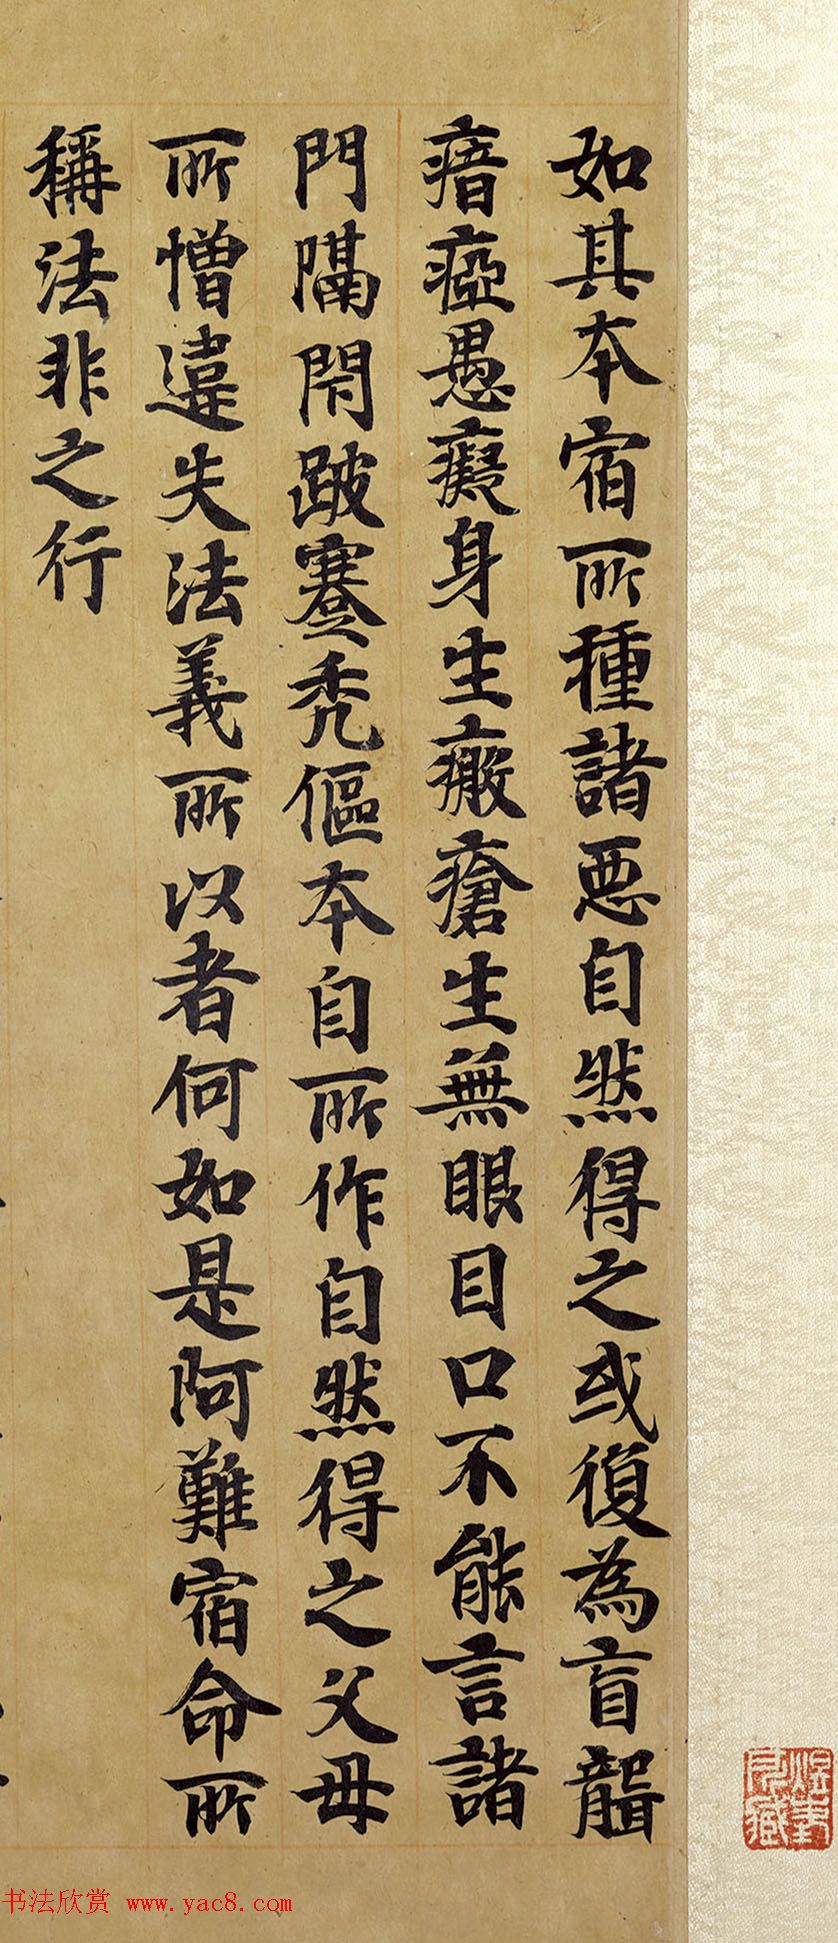 如其本宿所種諸惡自然得之或復為盲聾
瘖瘂愚癡身生瘢瘡生無眼目口不能言諸
門隔閇跛蹇禿傴本自所作自然得之父母
所憎違失法義所以者何如是阿難宿命所
稱法非之行
书法欣赏 www.yac8.com